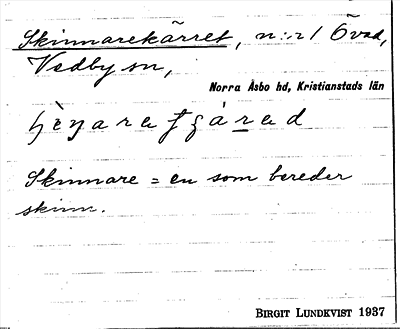 Skinnarekärret, n:r 1 Övad,
Vedby sn,
Norra Åsbo hd, Kristianstads län
Skinnare = en som bereder
skinn.
BIRGIT LUNDKVIST 1937